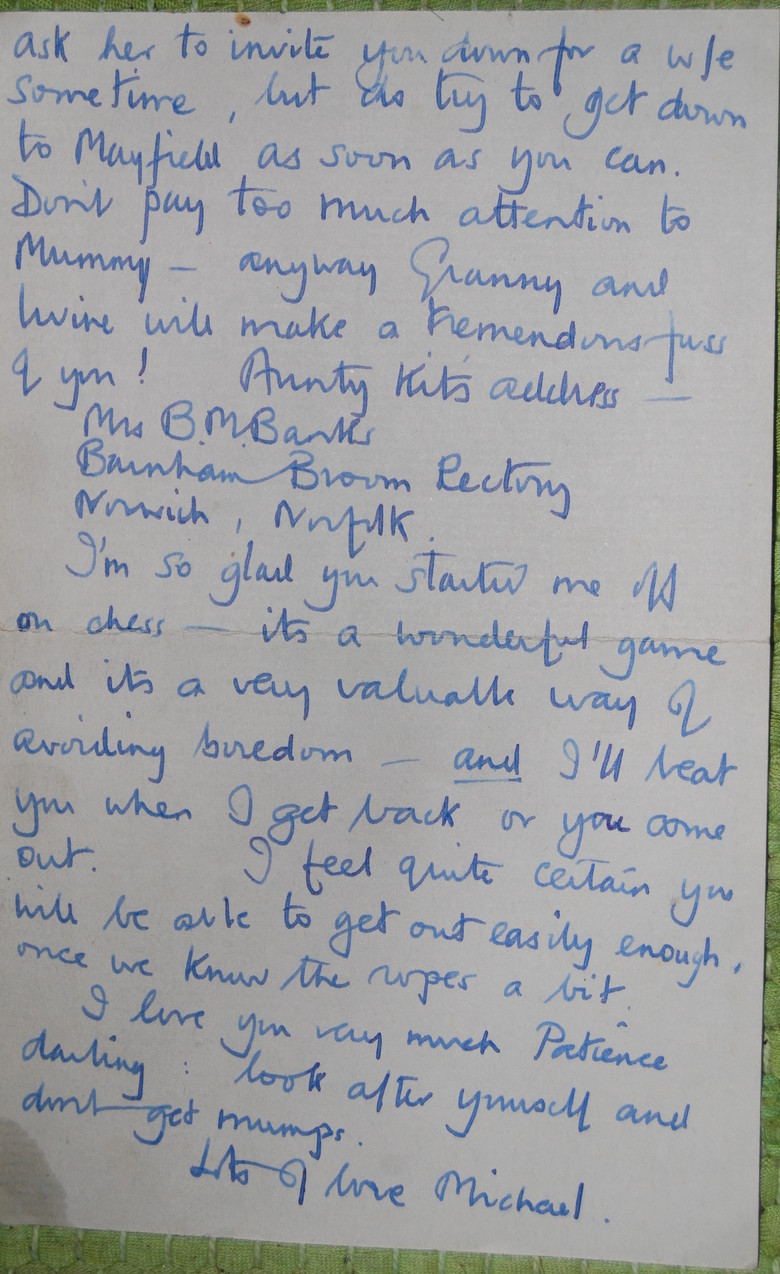 ask her to invite you down for a w/e
sometime, but do try to get down
to Mayfield as soon as you can.
Don't pay too much attention to
Mummy – anyway Granny and
will make a tremendous fuss
of you! Aunty Kit's address —
Mrs B.M. Banks
Barnham Broom Rectory
Norwich, Norfolk.
I'm so glad you started me off
on chess — its a wonderful game
and its a very valuable way of
avoiding boredom — and I'll beat
you when I get back or you come
out. I feel quite certain you
will be able to get out easily enough,
once we know the ropes a bit.
I love you very much Patience
darling : look after yourself and
dont get mumps.
Lots of love Michael.